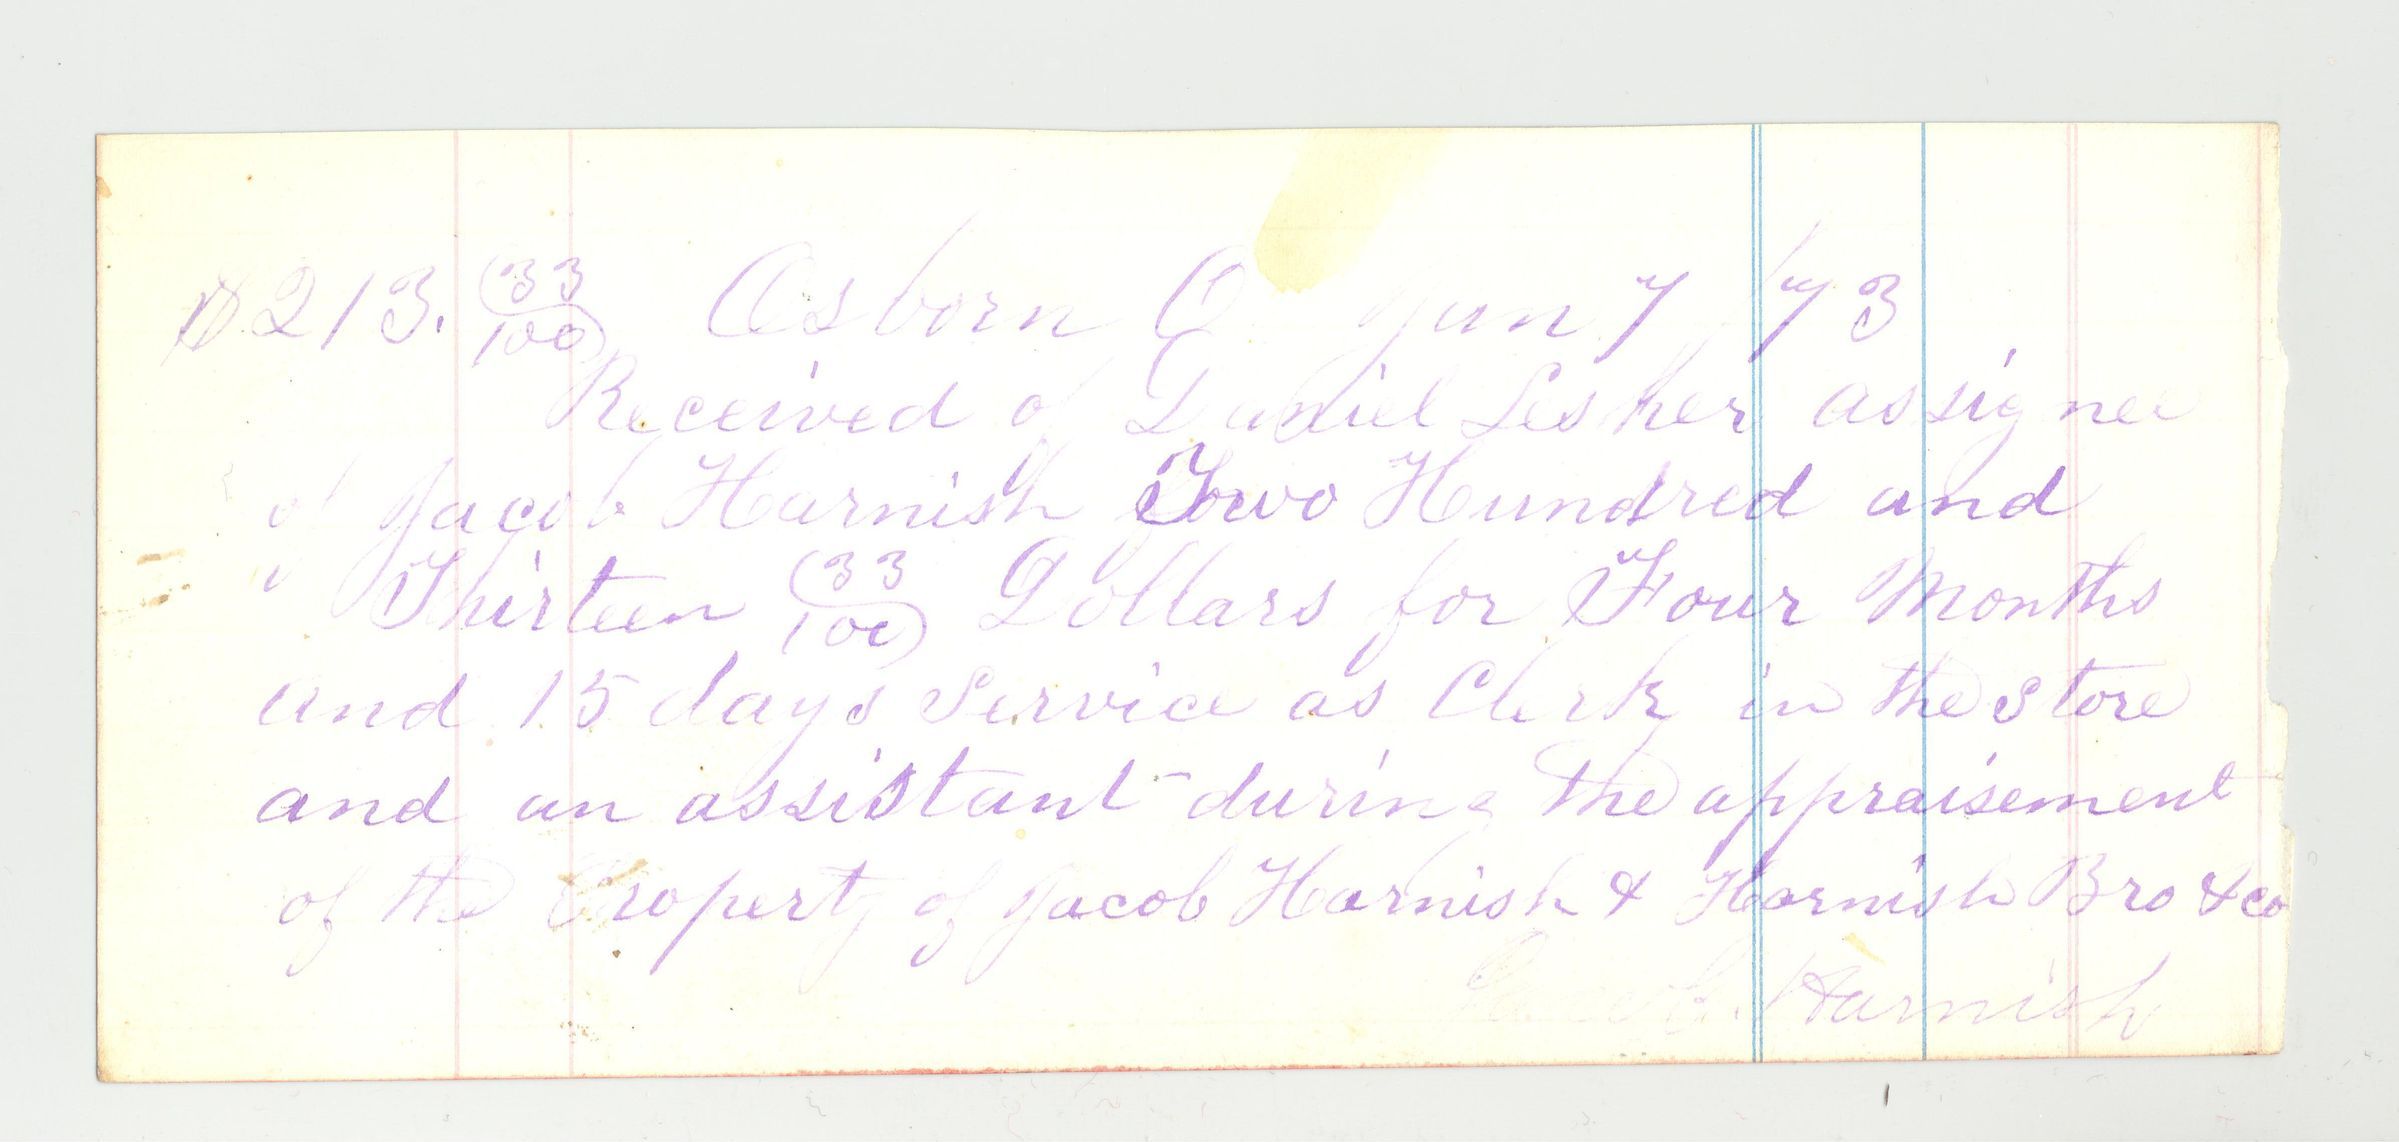 $213.33/100 Osborn O Jan 7 /73
Received of Daniel Lesher assignee
of Jacob Harnish Two Hundred and
Thirteen 33/100 Dollars for Four Months
and 15 days Service as Clerk in the store
and an assistant during the appraisement
of the Property of Jacob Harnish & Harnish Bro & co
Jacob Harnish